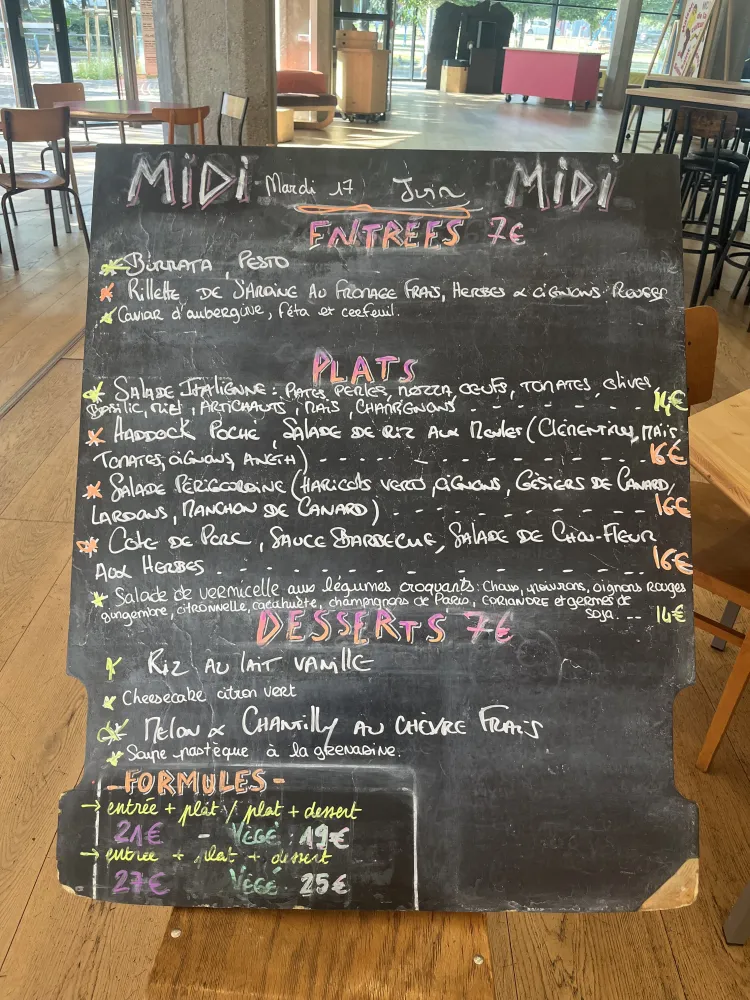 MIDI Mardi 17 Juin MIDI
ENTRÉES 7€
* BURRATA, PESTO
* Rillette DE SARDINE AU FROMAGE FRAIS, HERBES & OIGNONS ROUGES
* Caviar d'aubergine, féta et cerfeuil.
PLATS
* SALADE ITALIENNE : PATES PERLES, MOZZA, OEUFS, TOMATES, OLIVES,
BASILIC, ARTICHAUTS, MAÏS, CHAMPIGNONS - - - - - - - 14€
* HADDOCK POCHÉ, SALADE DE RIZ AUX MOULES (CLÉMENTINE, MAÏS,
TOMATES, OIGNONS, ANETH) - - - - - - - - - - 16€
* SALADE PÉRIGORDINE (HARICOTS VERTS, OIGNONS, GÉSIERS DE CANARD,
LARDONS, MANCHON DE CANARD) - - - - - - - - - 16€
* COTE DE PORC, SAUCE BARBECUE, SALADE DE CHOU-FLEUR
AUX HERBES - - - - - - - - - - - - - - 16€
* Salade de vermicelle aux légumes croquants : Choux, poivrons, oignons rouges
gingembre, citronnelle, cacahuète, champignons de Paris, CORIANDRE et germes de
soja. - - 14€
DESSERTS 7€
* RIZ AU LAIT VANILLE
* Cheesecake citron vert
* MELON & CHANTILLY AU CHÈVRE FRAIS
* Soupe pastèque à la grenadine.
-FORMULES-
→ entrée + plat / plat + dessert
21€ - VÉGÉ : 19€
→ entrée + plat + dessert
27€ VÉGÉ : 25€